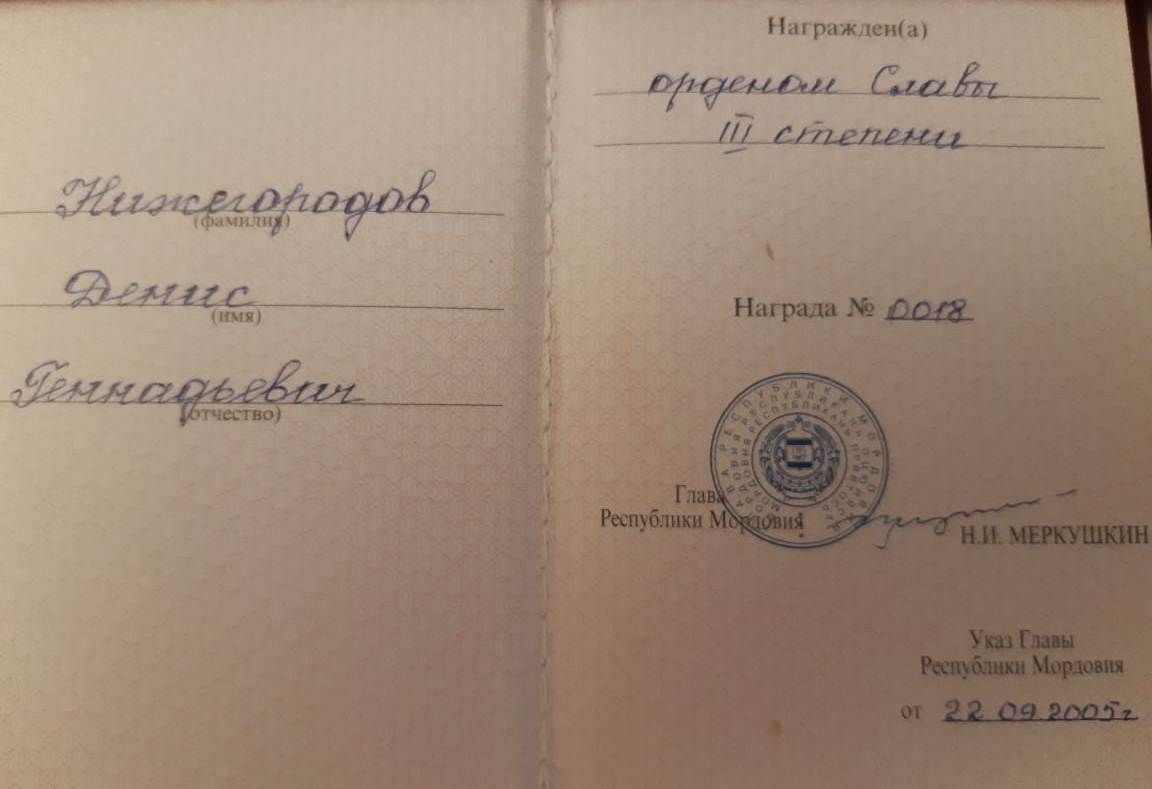 Нижегородов
(фамилия)
Денис
(имя)
Геннадьевич
(отчество)
Награжден(а)
орденом Славы
III степени
Награда № 0018
Глава
Республики Мордовия
Н.И. МЕРКУШКИН
Указ Главы
Республики Мордовия
от 22 09 2005г